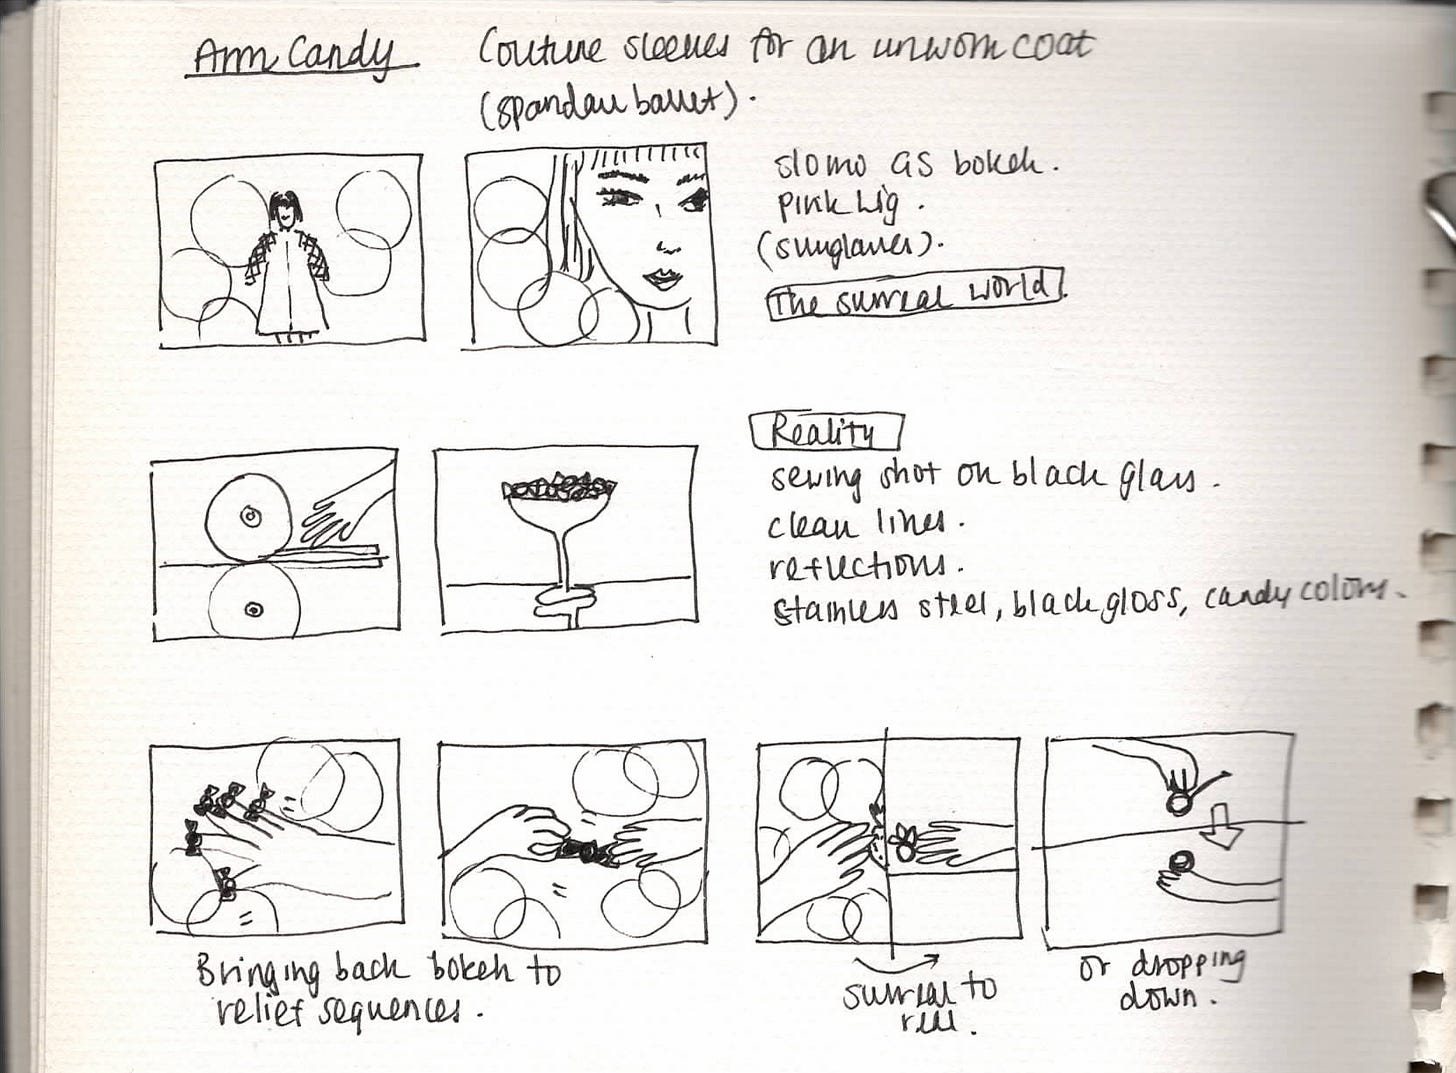 Arm Candy Couture sleeves for an unworn coat
(spandau ballet).
slomo as bokeh.
pink wig.
(sunglasses).
The surreal world.
Reality
sewing shot on black glass.
clean lines.
reflections.
stainless steel, black gloss, candy colors.
Bringing back bokeh to
relief sequences.
surreal to
real.
or dropping
down.